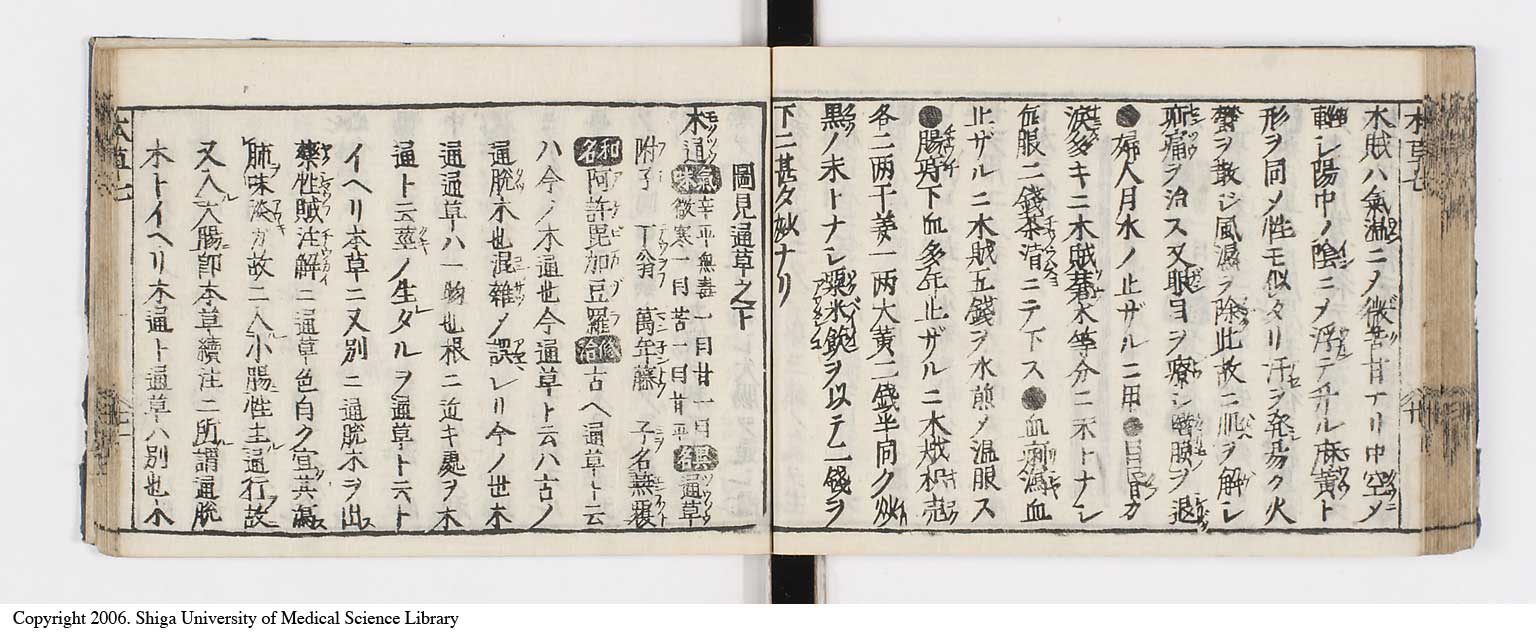 木賊ハ氣溫ニノ微苦甘ナリ中空メ
輕シ陽中ノ陰ニメ浮テナル麻黄ト
形ヲ同メ性モ似タリ汗ヲ発易ク火
欝ヲ散ジ風濕ヲ除此故ニ肌ヲ解シ
疝痛ヲ治ス又眼目ヲ療シ瞖膜ヲ退
●婦人月水ノ止ザルニ用●目昏カ
涙多キニ木賊蒼木等分ニ末トナシ
毎服二錢茶清ニテ下ス●血痢瀉血
止ザルニ木賊五錢ヲ水煎ノ温服ス
●腸痔下血多年止ザルニ木賊枳殻
各二两干姜一两大黄二錢半同ク炒
黒ノ末トナシ粟米飲ヲ以テ二錢ヲ
下ニ甚タ妙ナリ
圖見通草之下
木通 氣味 辛平無毒一曰甘一曰
微寒一曰苦一曰甘平 異名 通草
附子 丁翁 萬年藤 子名燕覆
和名 阿許毘加豆羅 修治 古ヘ通草ト云
ハ今ノ木通也今通草ト云ハ古ノ
通脱木也混雑ノ誤レリ今ノ世木
通通草ハ一物也根ニ近キ處ヲ木
通ト云莖ノ生タルヲ通草ト云ト
イヘリ本草ニ又別ニ通脱木ヲ出
藥性賦注解ニ通草色白ク宜其瀉
肺味淡カ故ニ入小腸性主通行故
又入大腸即本草續注ニ所謂通脱
木トイヘリ木通ト通草ハ別也木
Copyright 2006. Shiga University of Medical Science Library